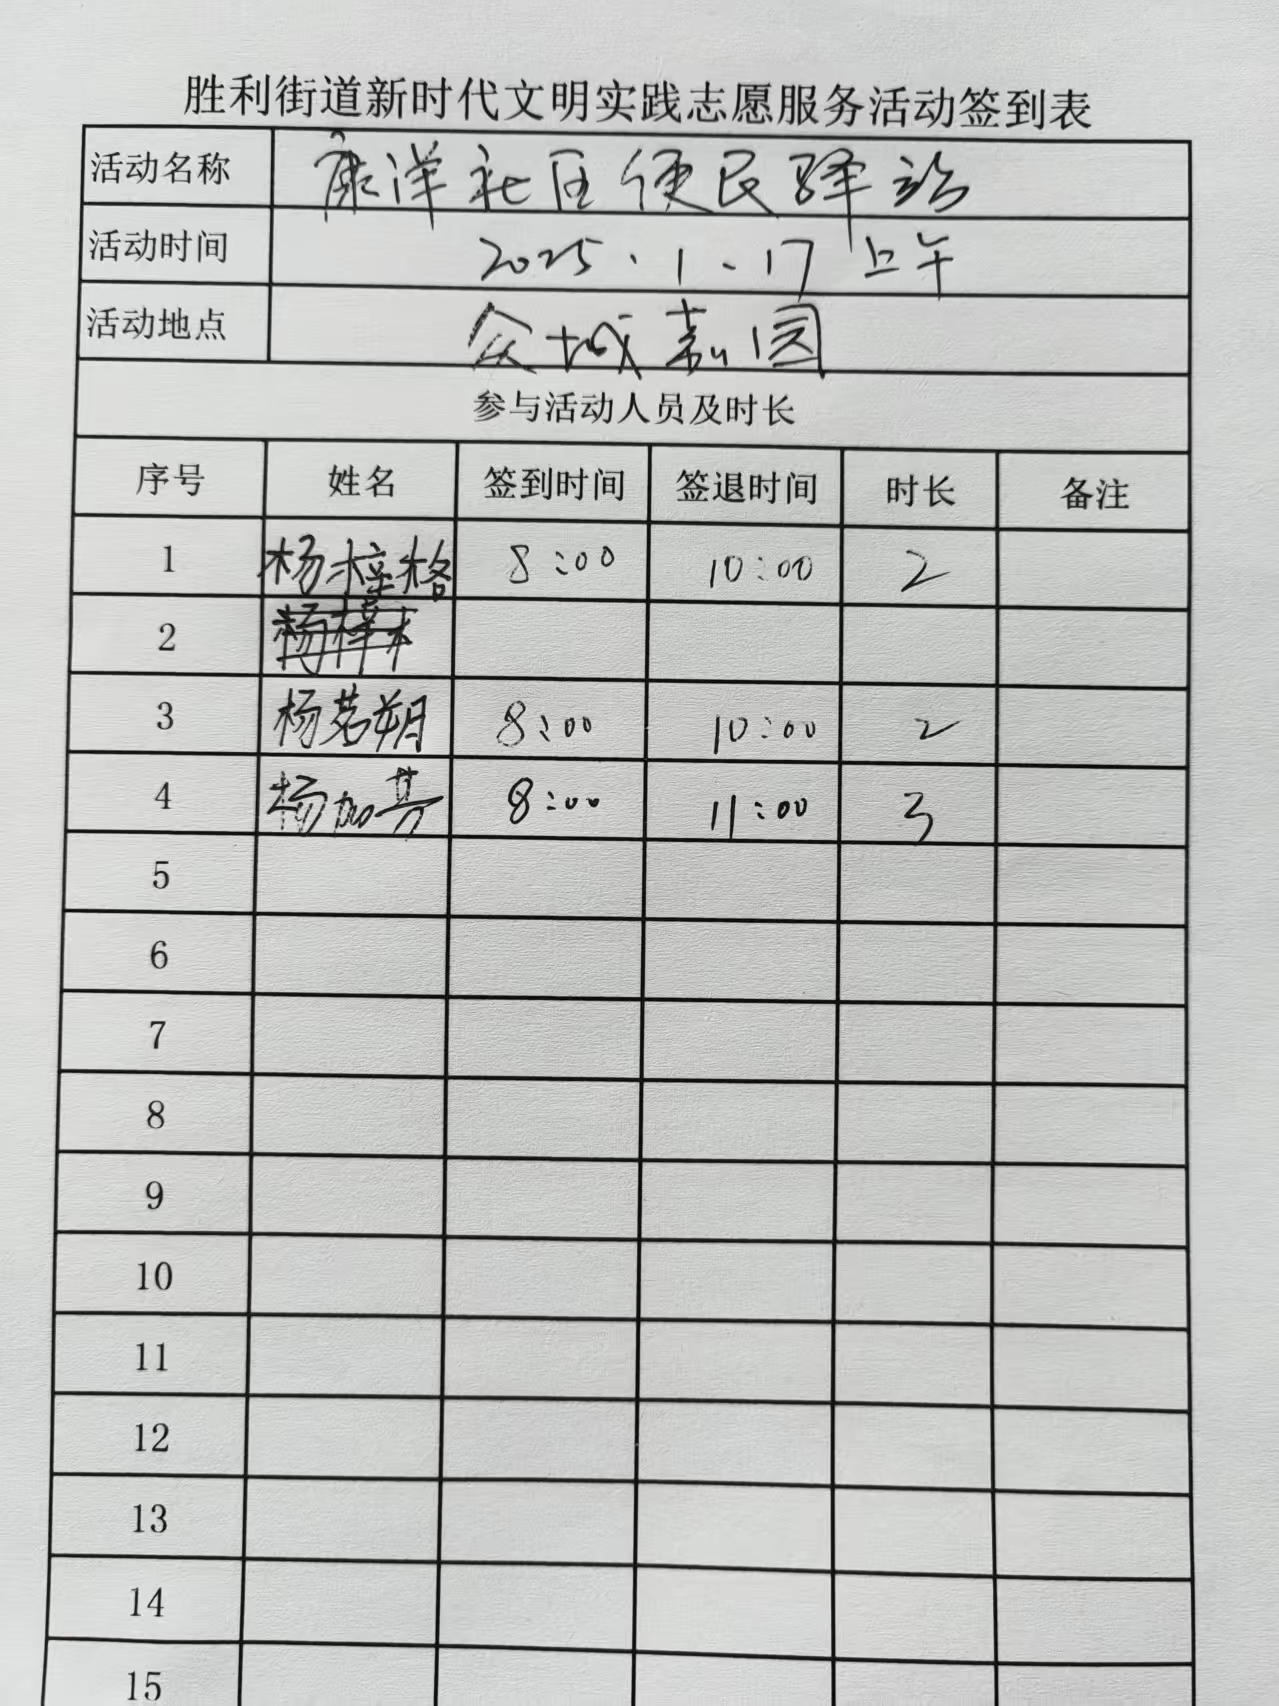 胜利街道新时代文明实践志愿服务活动签到表
活动名称 康洋社区便民驿站
活动时间 2025.1.17 上午
活动地点 众城嘉园
参与活动人员及时长
序号 姓名 签到时间 签退时间 时长 备注
1 杨梓格 8:00 10:00 2
2
3 杨茗朔 8:00 10:00 2
4 杨加 8:00 11:00 3
5
6
7
8
9
10
11
12
13
14
15